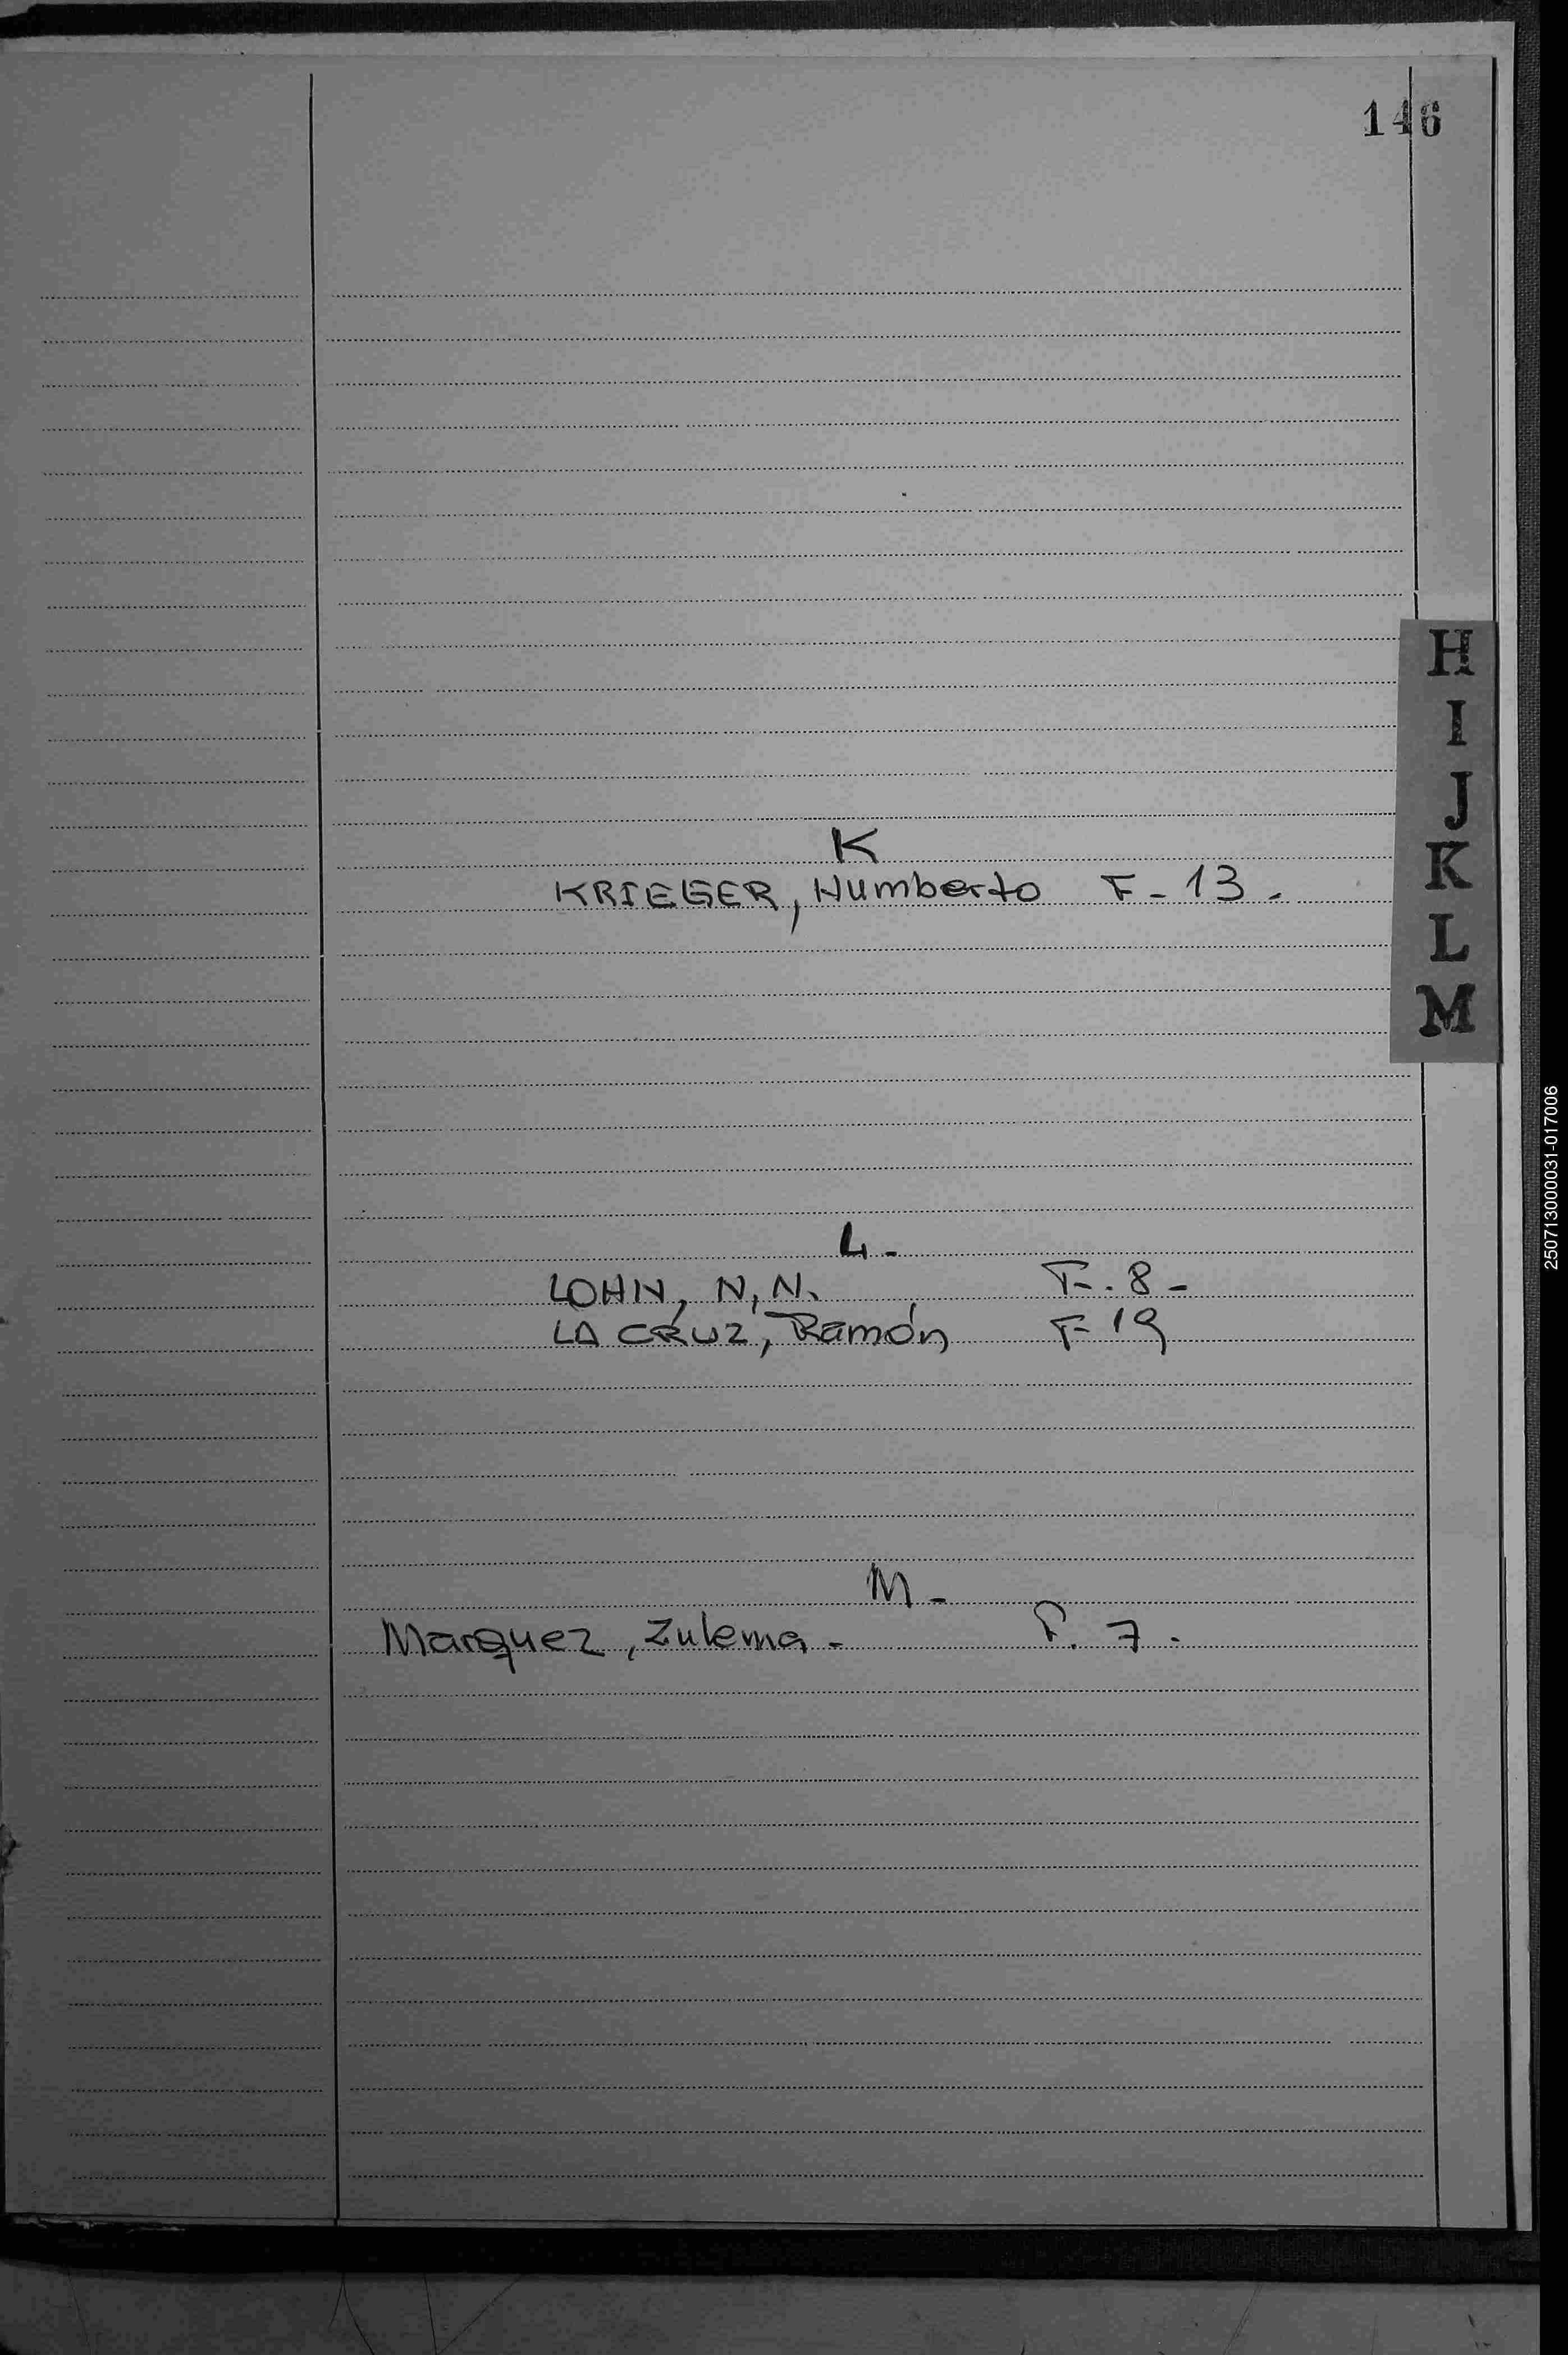 146
H
I
J
K
L
M
K
KRIEGER, Humberto F- 13.
L.-
LOHN, N,N. F.. 8-
LA CRUZ, Ramón F 19
M-
Marquez, Zulema.- F. 7.
250713000031-017006